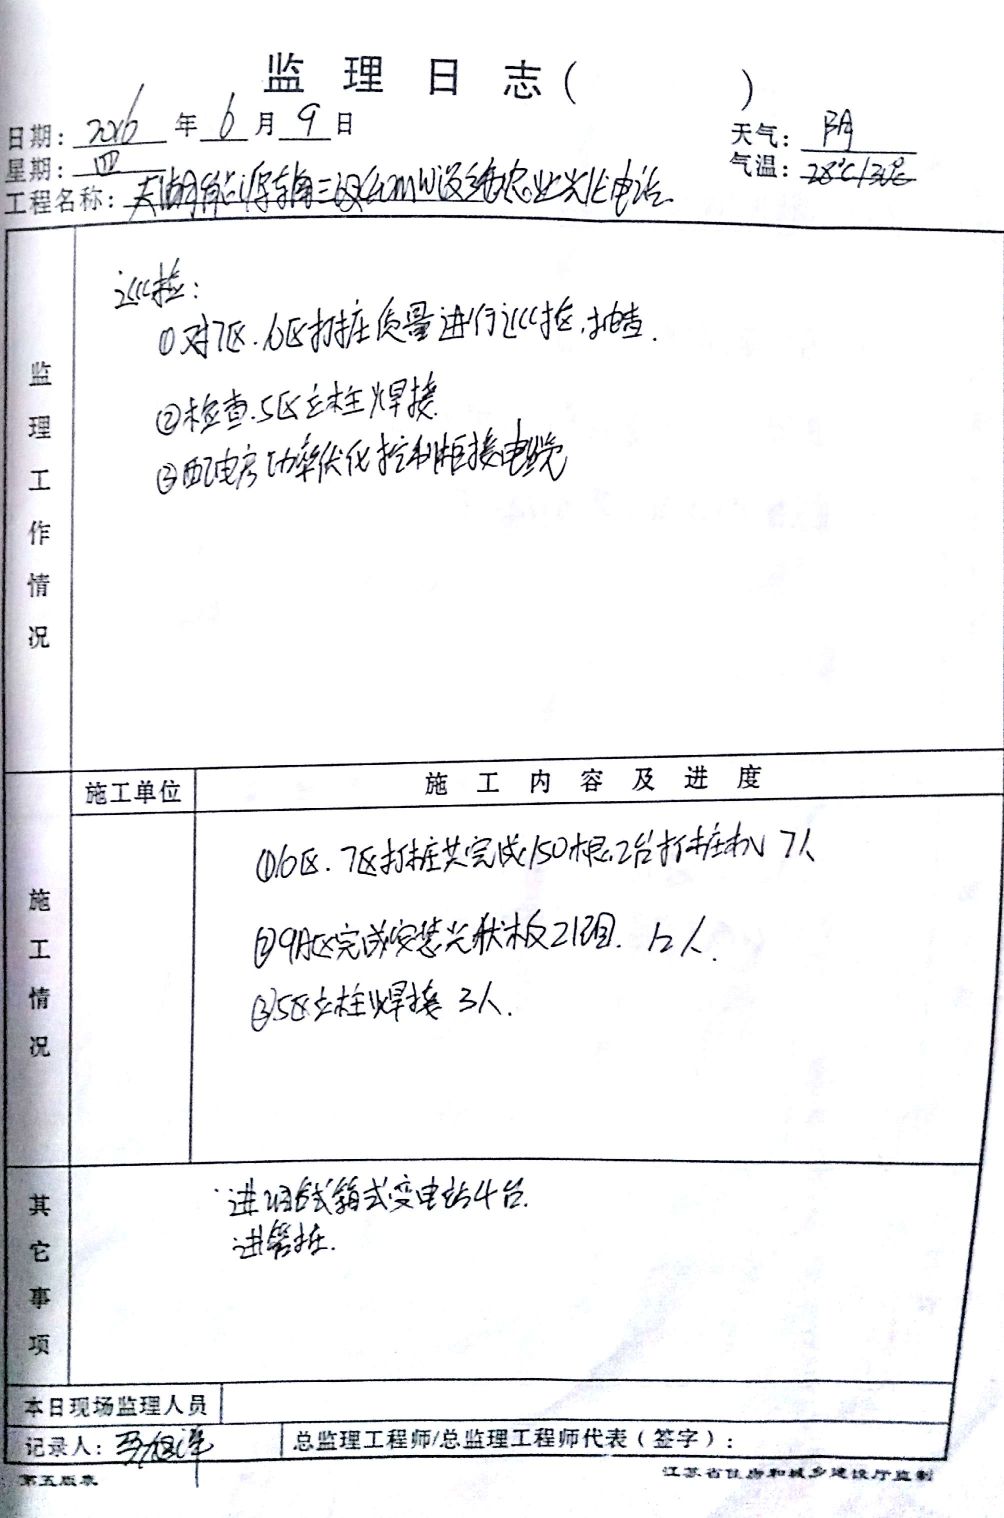 监理日志( )
日期: 2016 年 6 月 9 日
天气: 阴
星期: 四
气温: 28℃/32℃
工程名称: 40MW设施农业光伏电站
监理工作情况
巡检:
①对7区.6区打桩质量进行巡检.抽查.
②检查.5区立柱焊接
③配电房功率优化控制柜接电缆
施工情况
施工单位
施工内容及进度
①6区.7区打桩共完成150根.2台打桩机 7人
②9A区完成安装光伏板21组. 12人.
③5区立柱焊接 3人.
其它事项
箱式变电站4台.
进管桩.
本日现场监理人员
记录人:
总监理工程师/总监理工程师代表(签字):
第五版表
江苏省住房和城乡建设厅监制